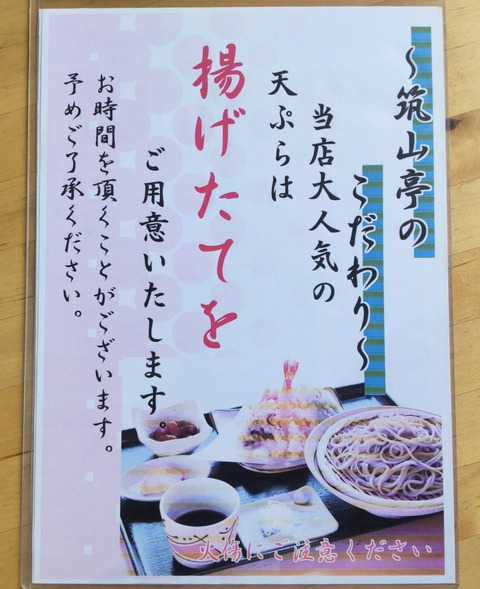 ～筑山亭の
こだわり～
当店大人気の
天ぷらは
揚げたてを
ご用意いたします。
お時間を頂くことがございます。
予めご了承ください。
火傷にご注意ください